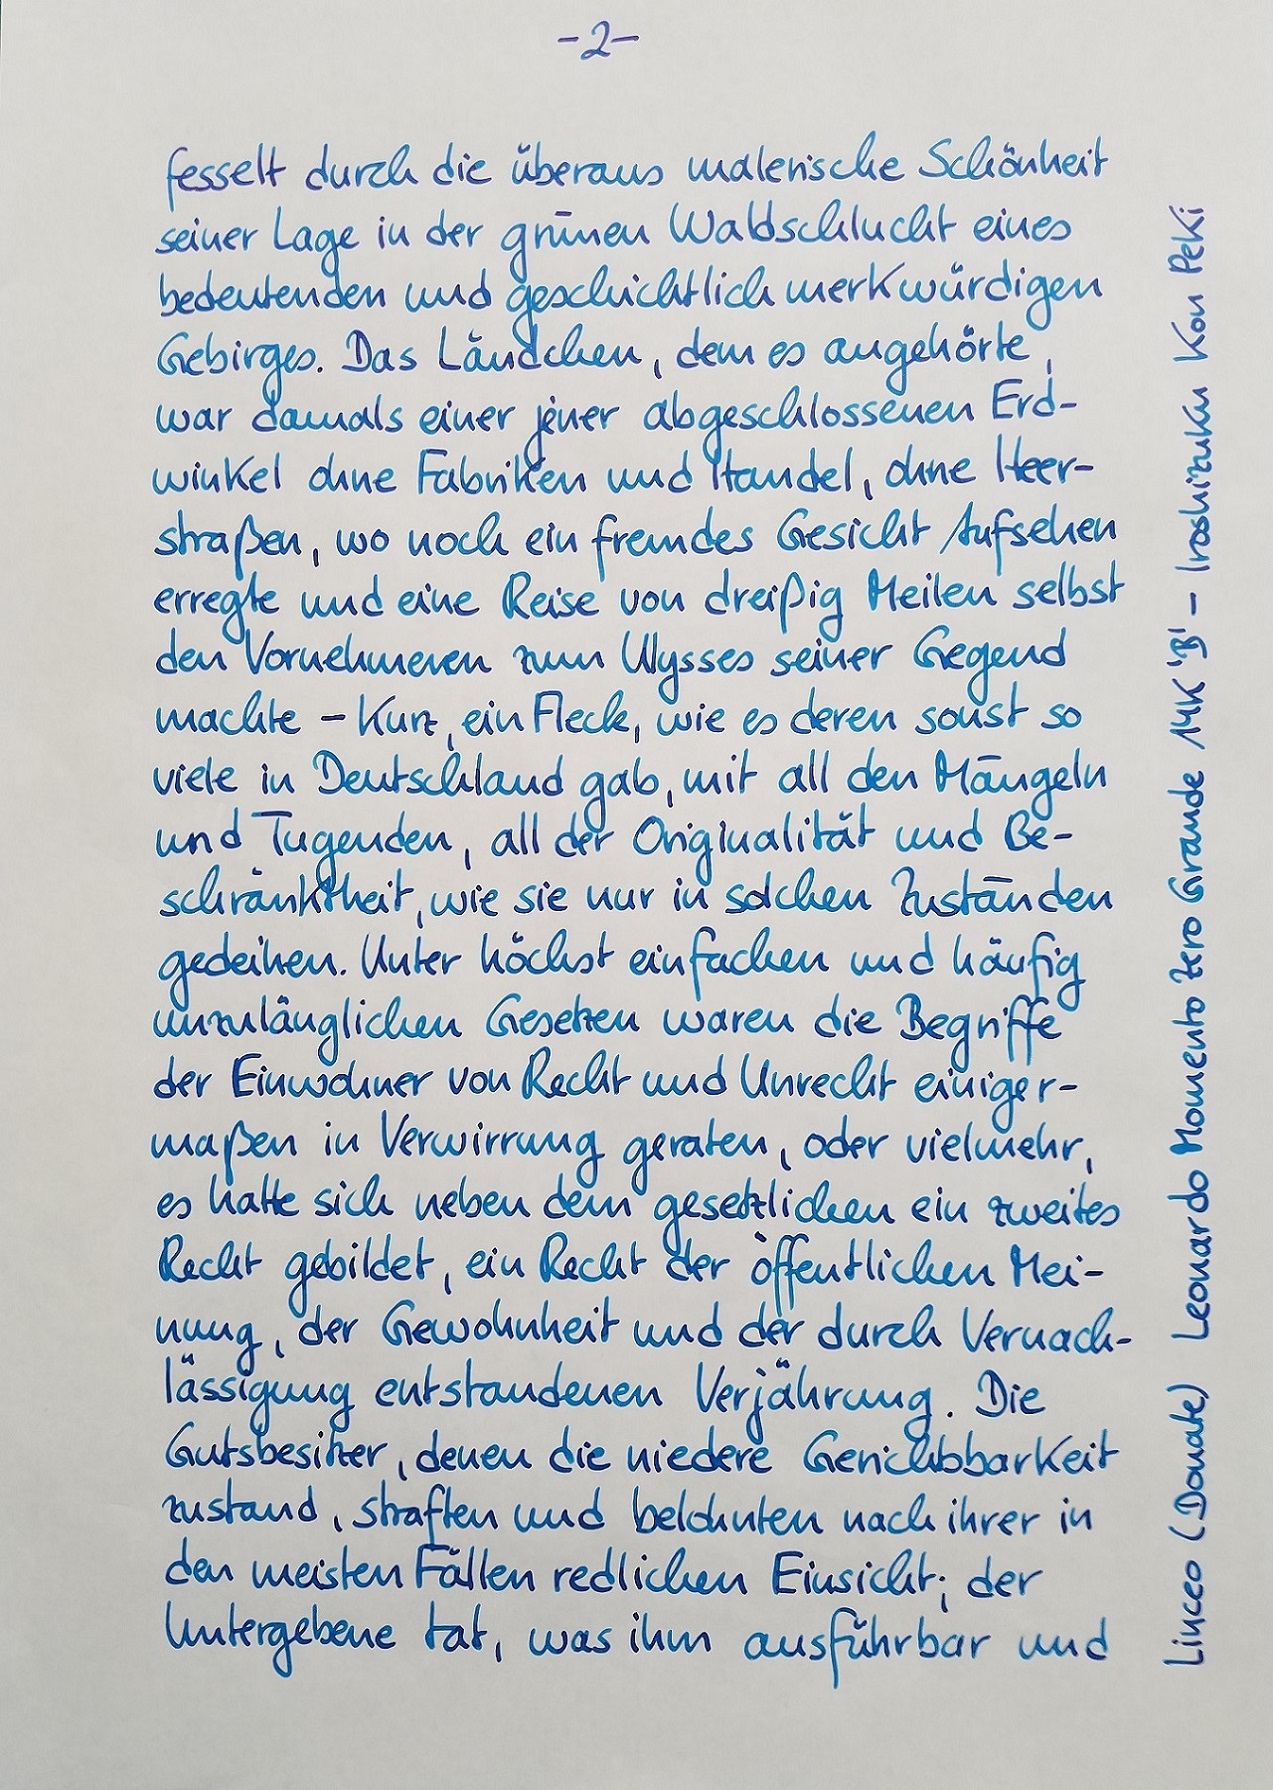 -2-
fesselt durch die überaus malerische Schönheit
seiner Lage in der grünen Waldschlucht eines
bedeutenden und geschichtlich merkwürdigen
Gebirges. Das Ländchen, dem es angehörte,
war damals einer jener abgeschlossenen Erd-
winkel ohne Fabriken und Handel, ohne Heer-
straßen, wo noch ein fremdes Gesicht Aufsehen
erregte und eine Reise von dreißig Meilen selbst
den Vornehmeren zum Ulysses seiner Gegend
machte – kurz, ein Fleck, wie es deren sonst so
viele in Deutschland gab, mit all den Mängeln
und Tugenden, all der Originalität und Be-
schränktheit, wie sie nur in solchen Zuständen
gedeihen. Unter höchst einfachen und häufig
unzulänglichen Gesetzen waren die Begriffe
der Einwohner von Recht und Unrecht einiger-
maßen in Verwirrung geraten, oder vielmehr,
es hatte sich neben dem gesetzlichen ein zweites
Recht gebildet, ein Recht der öffentlichen Mei-
nung, der Gewohnheit und der durch Vernach-
lässigung entstandenen Verjährung. Die
Gutsbesitzer, denen die niedere Gerichtsbarkeit
zustand, straften und belohnten nach ihrer in
den meisten Fällen redlichen Einsicht; der
Untergebene tat, was ihm ausführbar und
Linceo (Donate) Leonardo Momento Zero Grande 14K 'B' – Iroshizuku Kon Peki